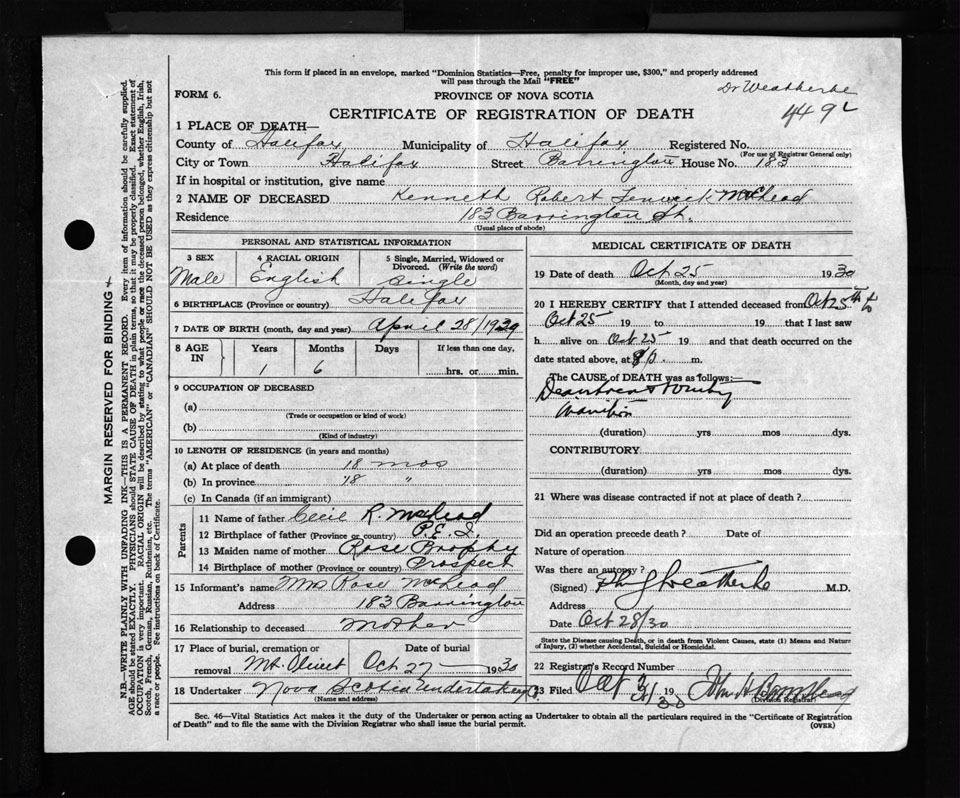 This form if placed in an envelope, marked "Dominion Statistics—Free, penalty for improper use, $300," and properly addressed
will pass through the Mail "FREE"
Dr Weatherbe
FORM 6.
PROVINCE OF NOVA SCOTIA
449
CERTIFICATE OF REGISTRATION OF DEATH
1 PLACE OF DEATH—
County of Halifax Municipality of Halifax Registered No.
(For use of Registrar General only)
City or Town Halifax Street Barrington House No. 183
If in hospital or institution, give name
2 NAME OF DECEASED Kenneth Robert Fenwick McLeod
Residence 183 Barrington St.
(Usual place of abode)
PERSONAL AND STATISTICAL INFORMATION
3 SEX 4 RACIAL ORIGIN 5 Single, Married, Widowed or
Divorced. (Write the word)
Male English Single
6 BIRTHPLACE (Province or country) Halifax
7 DATE OF BIRTH (month, day and year) April 28/1929
8 AGE IN Years Months Days If less than one day,
1 6 hrs. or min.
9 OCCUPATION OF DECEASED
(a)
(Trade or occupation or kind of work)
(b)
(Kind of industry)
10 LENGTH OF RESIDENCE (in years and months)
(a) At place of death 18 mos
(b) In province 18 "
(c) In Canada (if an immigrant)
Parents
11 Name of father Cecil R. McLeod
12 Birthplace of father (Province or country) P.E.I.
13 Maiden name of mother Rose Brophy
14 Birthplace of mother (Province or country) Prospect
15 Informant's name Mrs Rose McLeod
Address 183 Barrington
16 Relationship to deceased Mother
17 Place of burial, cremation or Date of burial
removal Mt. Olivet Oct 27 1930
18 Undertaker Nova Scotia Undertaking Co.
(Name and address)
MEDICAL CERTIFICATE OF DEATH
19 Date of death Oct 25 1930
(Month, day and year)
20 I HEREBY CERTIFY that I attended deceased from Oct 25th to
Oct 25 19 to 19 that I last saw
h alive on Oct 25 19 and that death occurred on the
date stated above, at m.
The CAUSE OF DEATH was as follows:—
(duration) yrs mos dys.
CONTRIBUTORY
(duration) yrs mos dys.
21 Where was disease contracted if not at place of death?
Did an operation precede death? Date of
Nature of operation
Was there an autopsy?
(Signed) Weatherbe M.D.
Address
Date Oct 28/30
State the Disease causing Death, or in death from Violent Causes, state (1) Means and Nature
of Injury, (2) whether Accidental, Suicidal or Homicidal.
22 Registrar's Record Number
23 Filed Oct 31/30 19 John H
(Division Registrar)
Sec. 46—Vital Statistics Act makes it the duty of the Undertaker or person acting as Undertaker to obtain all the particulars required in the "Certificate of Registration
of Death" and to file the same with the Division Registrar who shall issue the burial permit.
(OVER)
MARGIN RESERVED FOR BINDING
N.B.—WRITE PLAINLY WITH UNFADING INK—THIS IS A PERMANENT RECORD. Every item of information should be carefully supplied.
AGE should be stated EXACTLY. PHYSICIANS should STATE CAUSE OF DEATH in plain terms, so that it may be properly classified. Exact statement of
OCCUPATION is very important. RACIAL ORIGIN will be described by stating to what people or race the deceased person belonged, whether English, Irish,
Scotch, French, German, Russian, Ruthenian, etc. The terms "AMERICAN" or "CANADIAN" SHOULD NOT BE USED as they express citizenship but not
a race or people. See instructions on back of Certificate.